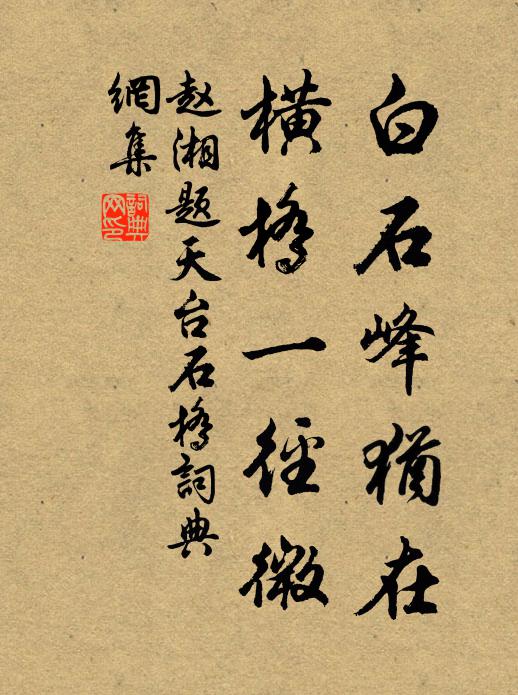 白石峰猶在
橫橋一徑微
赵湘题天台石橋詞典
網集
詞典網印